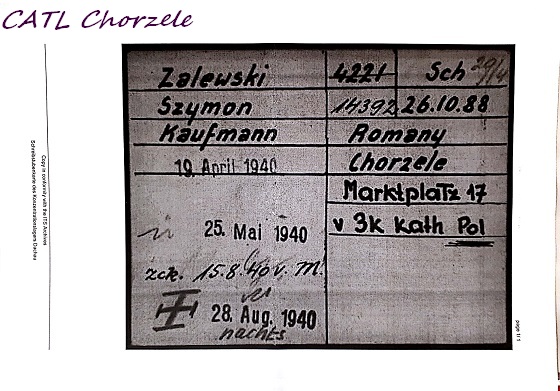 CATL Chorzele
Zalewski 4221 Sch
Szymon 14392 26.10.88
Kaufmann Romany
19. April 1940 Chorzele
Marktplatz 17
25. Mai 1940 v 3k Kath Pol
zck. 15.8.40 v. M.
28. Aug. 1940
nachts
Copy in conformity with the ITS Archives
Schreibstubenkarte des Konzentrationslagers Dachau
page 1/1